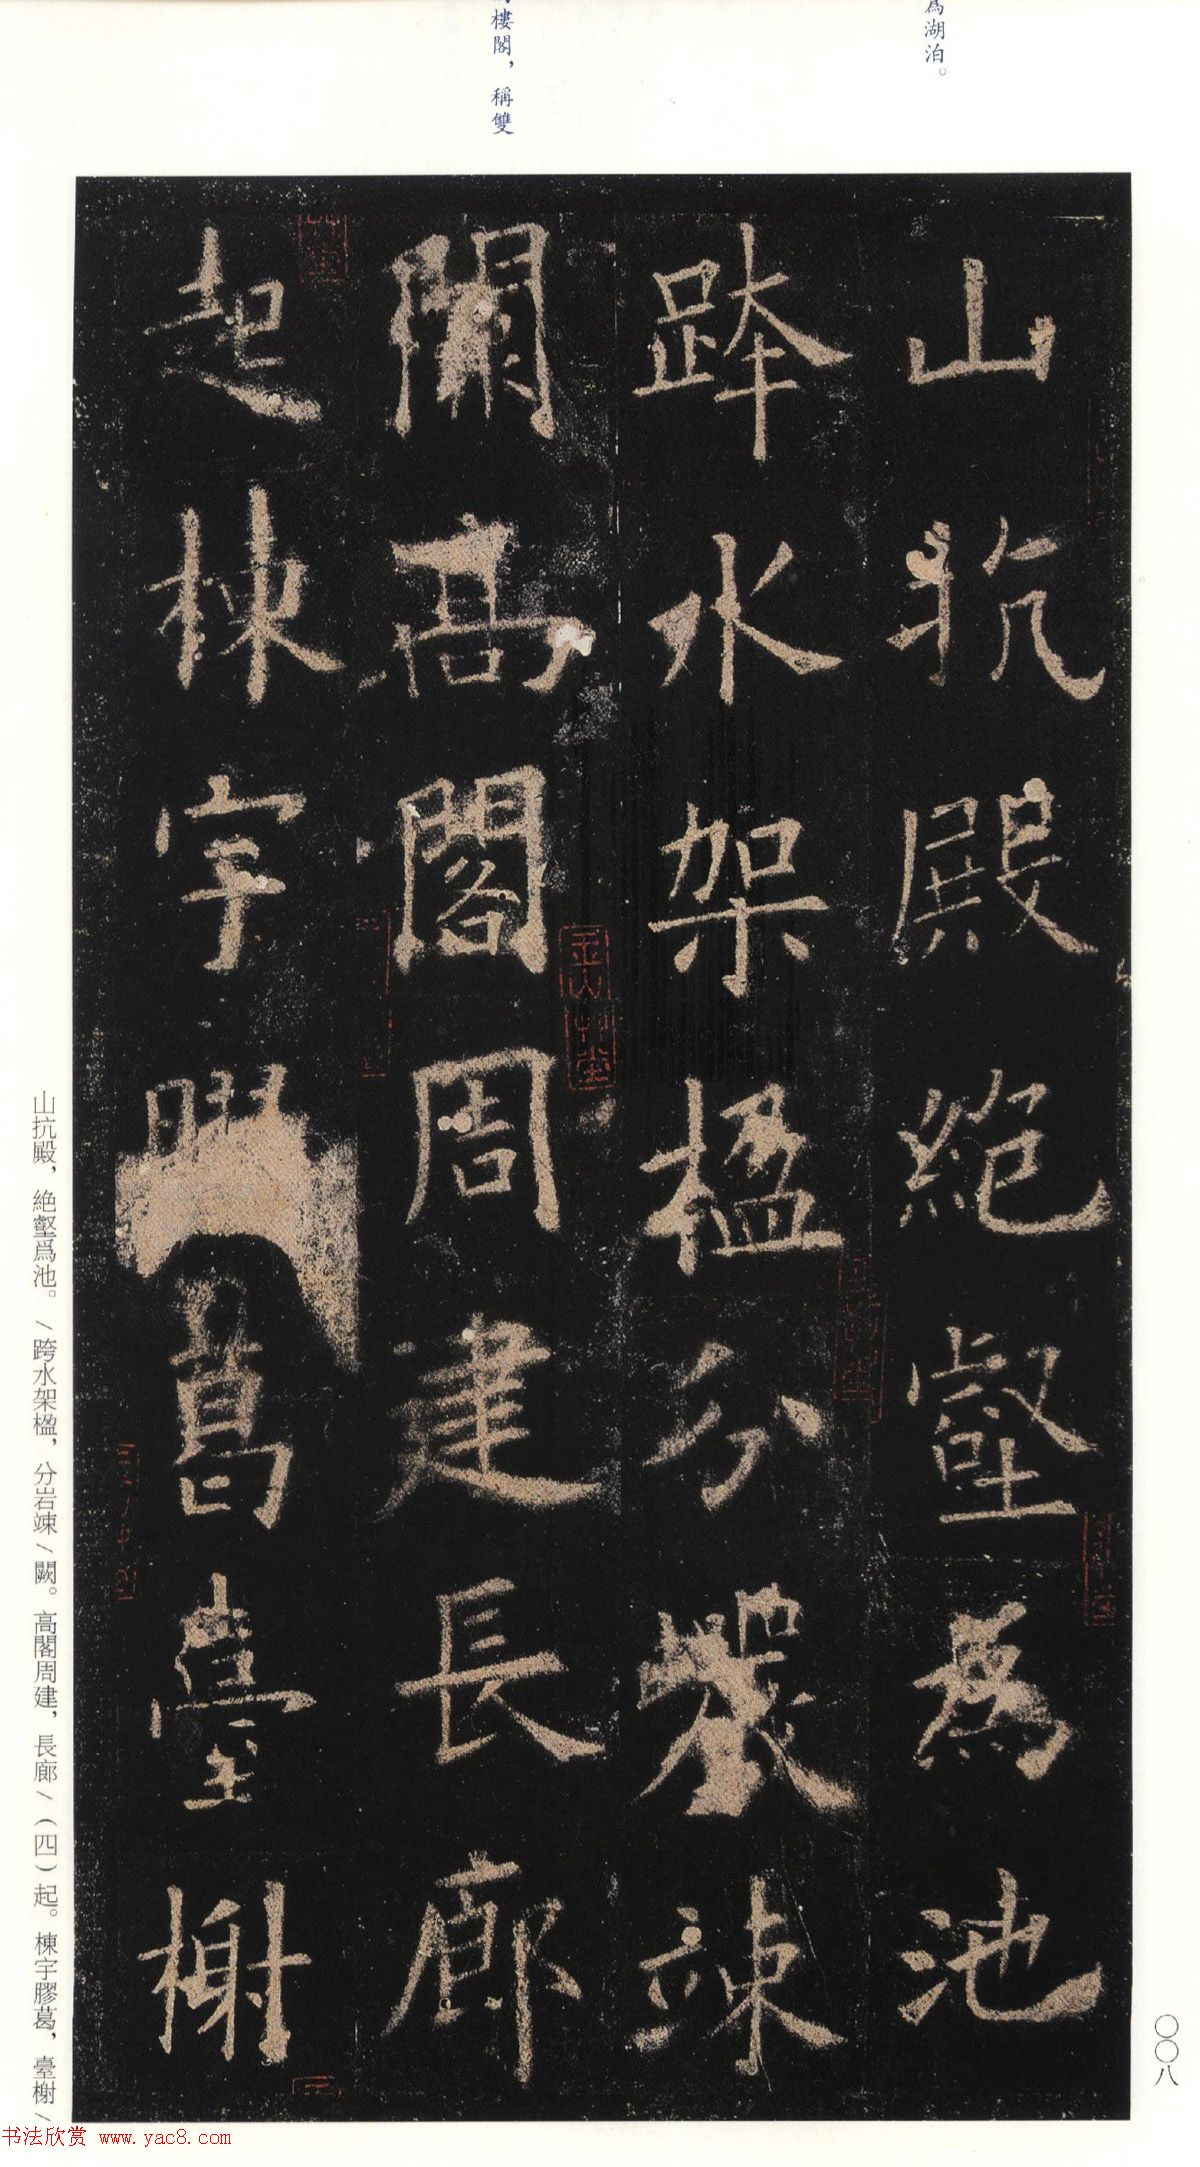 爲湖泊。
樓閣，稱雙
山抗殿絕壑為池
跨水架楹分巖竦
闕高閣周建長廊
起棟宇膠葛臺榭
山抗殿，絶壑爲池。/跨水架楹，分岩竦/闕。高閣周建，長廊/（四）起。棟宇膠葛，臺榭/
〇〇八
书法欣赏 www.yac8.com